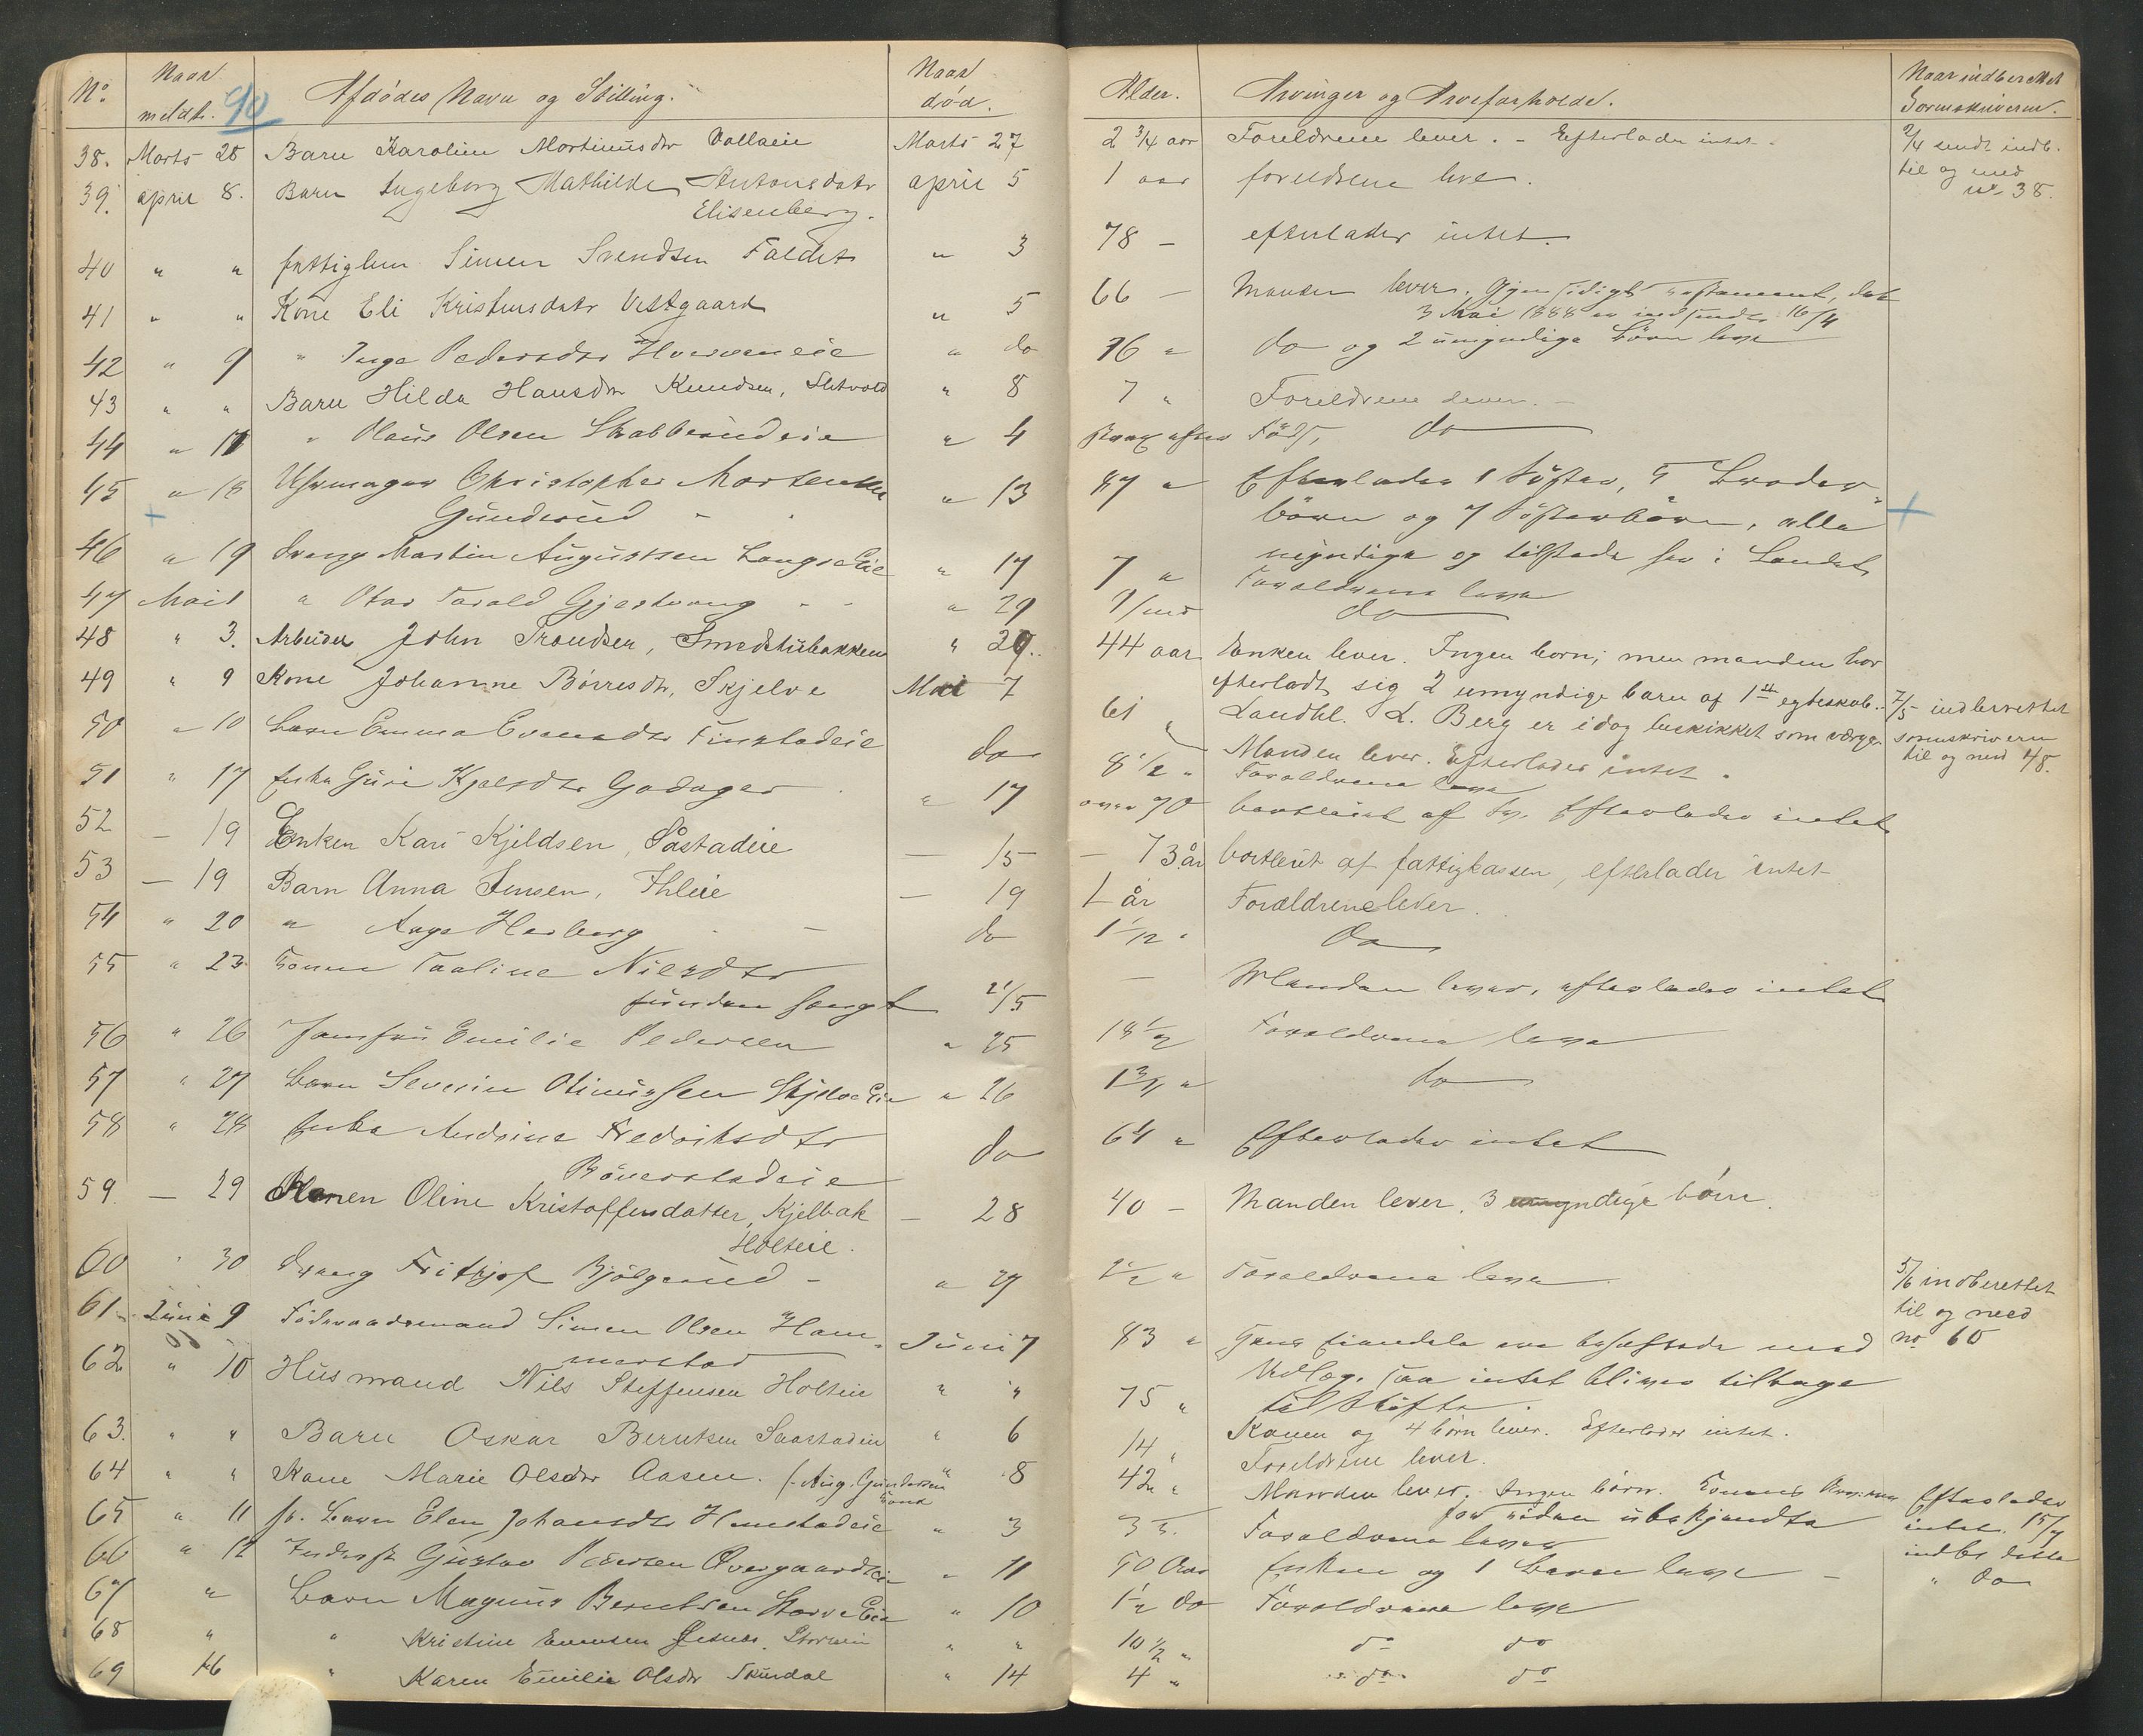 No. Naar meldt. 90 Afdødes Navn og Stilling. Naar død. Alder. Arvinger og Arveforholde. Naar indberettet Sorenskriveren.
38. Marts 28 Barn Karoline Martinusdtr Marts 27 2 3/4 aar Foreldrene lever. - Efterlader intet. 2/4 sendt indb. til og med no 38.
39. april 8. Barn Ingeborg Mathilde Antonsdatr april 5 1 aar foreldrene leve.
Elisenberg.
40 " " fattiglem Simen Svendsen Faldet " 3 78 - efterlader intet.
41 " " Kone Eli Kristensdatr Vestgaard " 5 66 - Manden lever. Gjensidigt testament, dat
3 Mai 1888 er indsendt 16/4
42 " 9 " Inge Pedersdtr " do 76 " do og 2 umyndige Børn leve
43 " " Barn Hilda Hansdtr Knudsen, " 8 7 " Foreldrene lever. -
44 " 11 " Olaus Olsen Skabberudeie " 4 strax efter Født, do
45 " 18 Uhrmager Christopher Mortensen " 13 87 " Efterlader 1 Søster, 5 Broder-
Gunderud - børn og 7 Søsterbørn, alle
myndige og tilstede her i Landet
46 " 19 dreng Martin Augustsen Langset Eie " 17 7 " Forældrene leve
47 Mai 1 " Otar Harald Gjestvang - - " 29 9/md do
48 " 3. Arbeider John Trondsen, Smedstubakken " 29. 44 aar Enken lever. Ingen born; men manden har
efterladt sig 2 umyndige barn af 1ste egteskab.. 7/5 indberettet sorenskriveren til og med 48.
Landhl. L. Berg er idag beskikket som værge
49 " 9 Kone Johanne Børresdtr, Skjelve Mai 7 61 " Manden lever. Efterlader intet.
50 " 10 barn Emma Evensdtr Finstadeie do 8 1/2 " Forældrene leve
51 " 17 Enke Guri Kjelsdtr Godager " 17 over 70 bortleiet af Efterlader intet
52 - 19 Enken Kari Kjeldsen, Såstadeie - 15 - 73 år bortleiet af fattigkassen, efterlader intet
53 - 19 Barn Anna Jensen, Ihleie - 19 1 år Forældrene lever.
54 " 20 " Aage Herberg - - do 1 1/12 " do
55 " 23 Taaline Nilsdtr 21/5 - Manden lever, efterlader intet
56 " 26 Jomfru Emilie Pedersen " 25 18 1/2 Forældrene leve
57 " 27 barn Severin Otimussen Skjelve Eie " 26 1 3/4 " do
58 " 28 Enke Andrine Fredriksdtr do 64 " Efterlader intet
59. - 29 Konen Oline Kristoffersdatter, Kjelbak - 28 40 - Manden lever, 3 umyndige børn.
Holteie.
60 " 30 dreng Fritzjof Bjølgerud - " 29 2 1/2 " Forældrene leve 5/6 indberettet til og med no 60
61. Juni 9 Føderaadsmand Simen Olsen Ham- Juni 7 83 " Hans Eiendele ere behæftede med
merstad Udlæg, saa intet bliver tilbage
til Skifte.
62 " 10 Husmand Nils Steffensen Holteie " " 75 " Konen og 4 børn lever. Efterlader intet.
63. " " Barn Oskar Berntsen Saastadeie " 6 14 " Foreldrene lever.
64 " " Kone Marie Olsdtr Aasen. (- Aug. Gundersen Kone " 8 42 " Manden lever. Ingen børn. Konens Arvinger Efterlader intet. 15/7
for siden ubekjendte
65 " 11 barn Elen Johansdtr " 3 3 Forældrene lever indb. dette
66 " 12 Inderst Gustav Pedersen Overgaardseie " 11 50 Aar Enken og 1 Barn leve - " do
67 " barn Magnus Berntsen Storve Eie " 10 1 1/2 do Forældrene leve
68 " " Kristine Evensen " " 10 1/2 " do do
69 16 " Karen Emilie Olsdtr Skurdal " 14 4 " do do